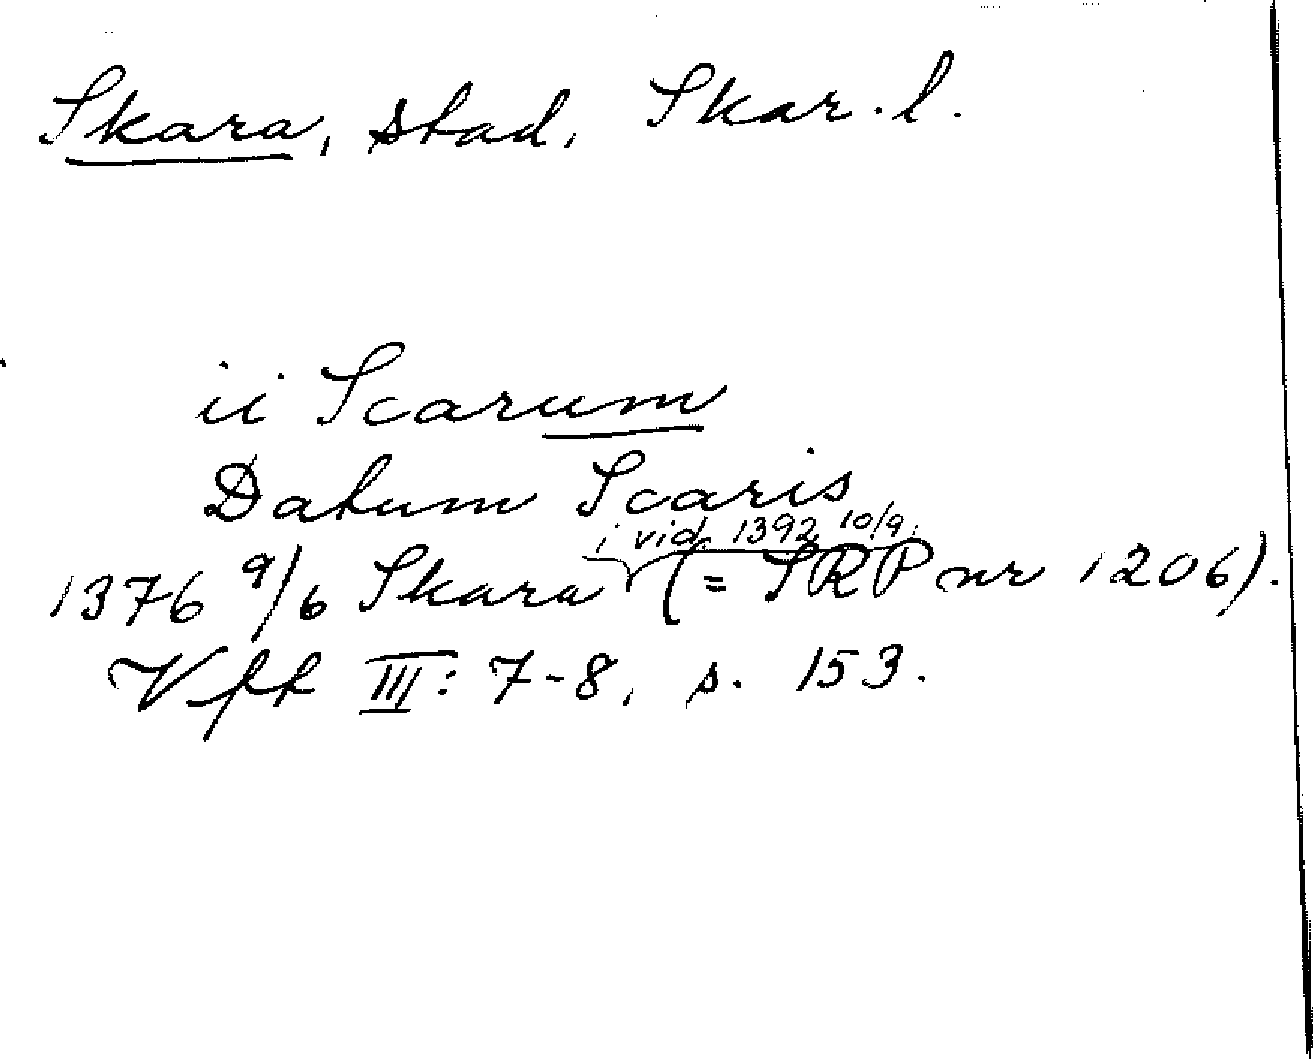 Skara, stad, Skar. l.
ii Scarum
Datum Scaris
i vid. 1392 10/9.
1376 9/6 Skara (= SRP nr 1206).
Vfft III: 7-8, s. 153.